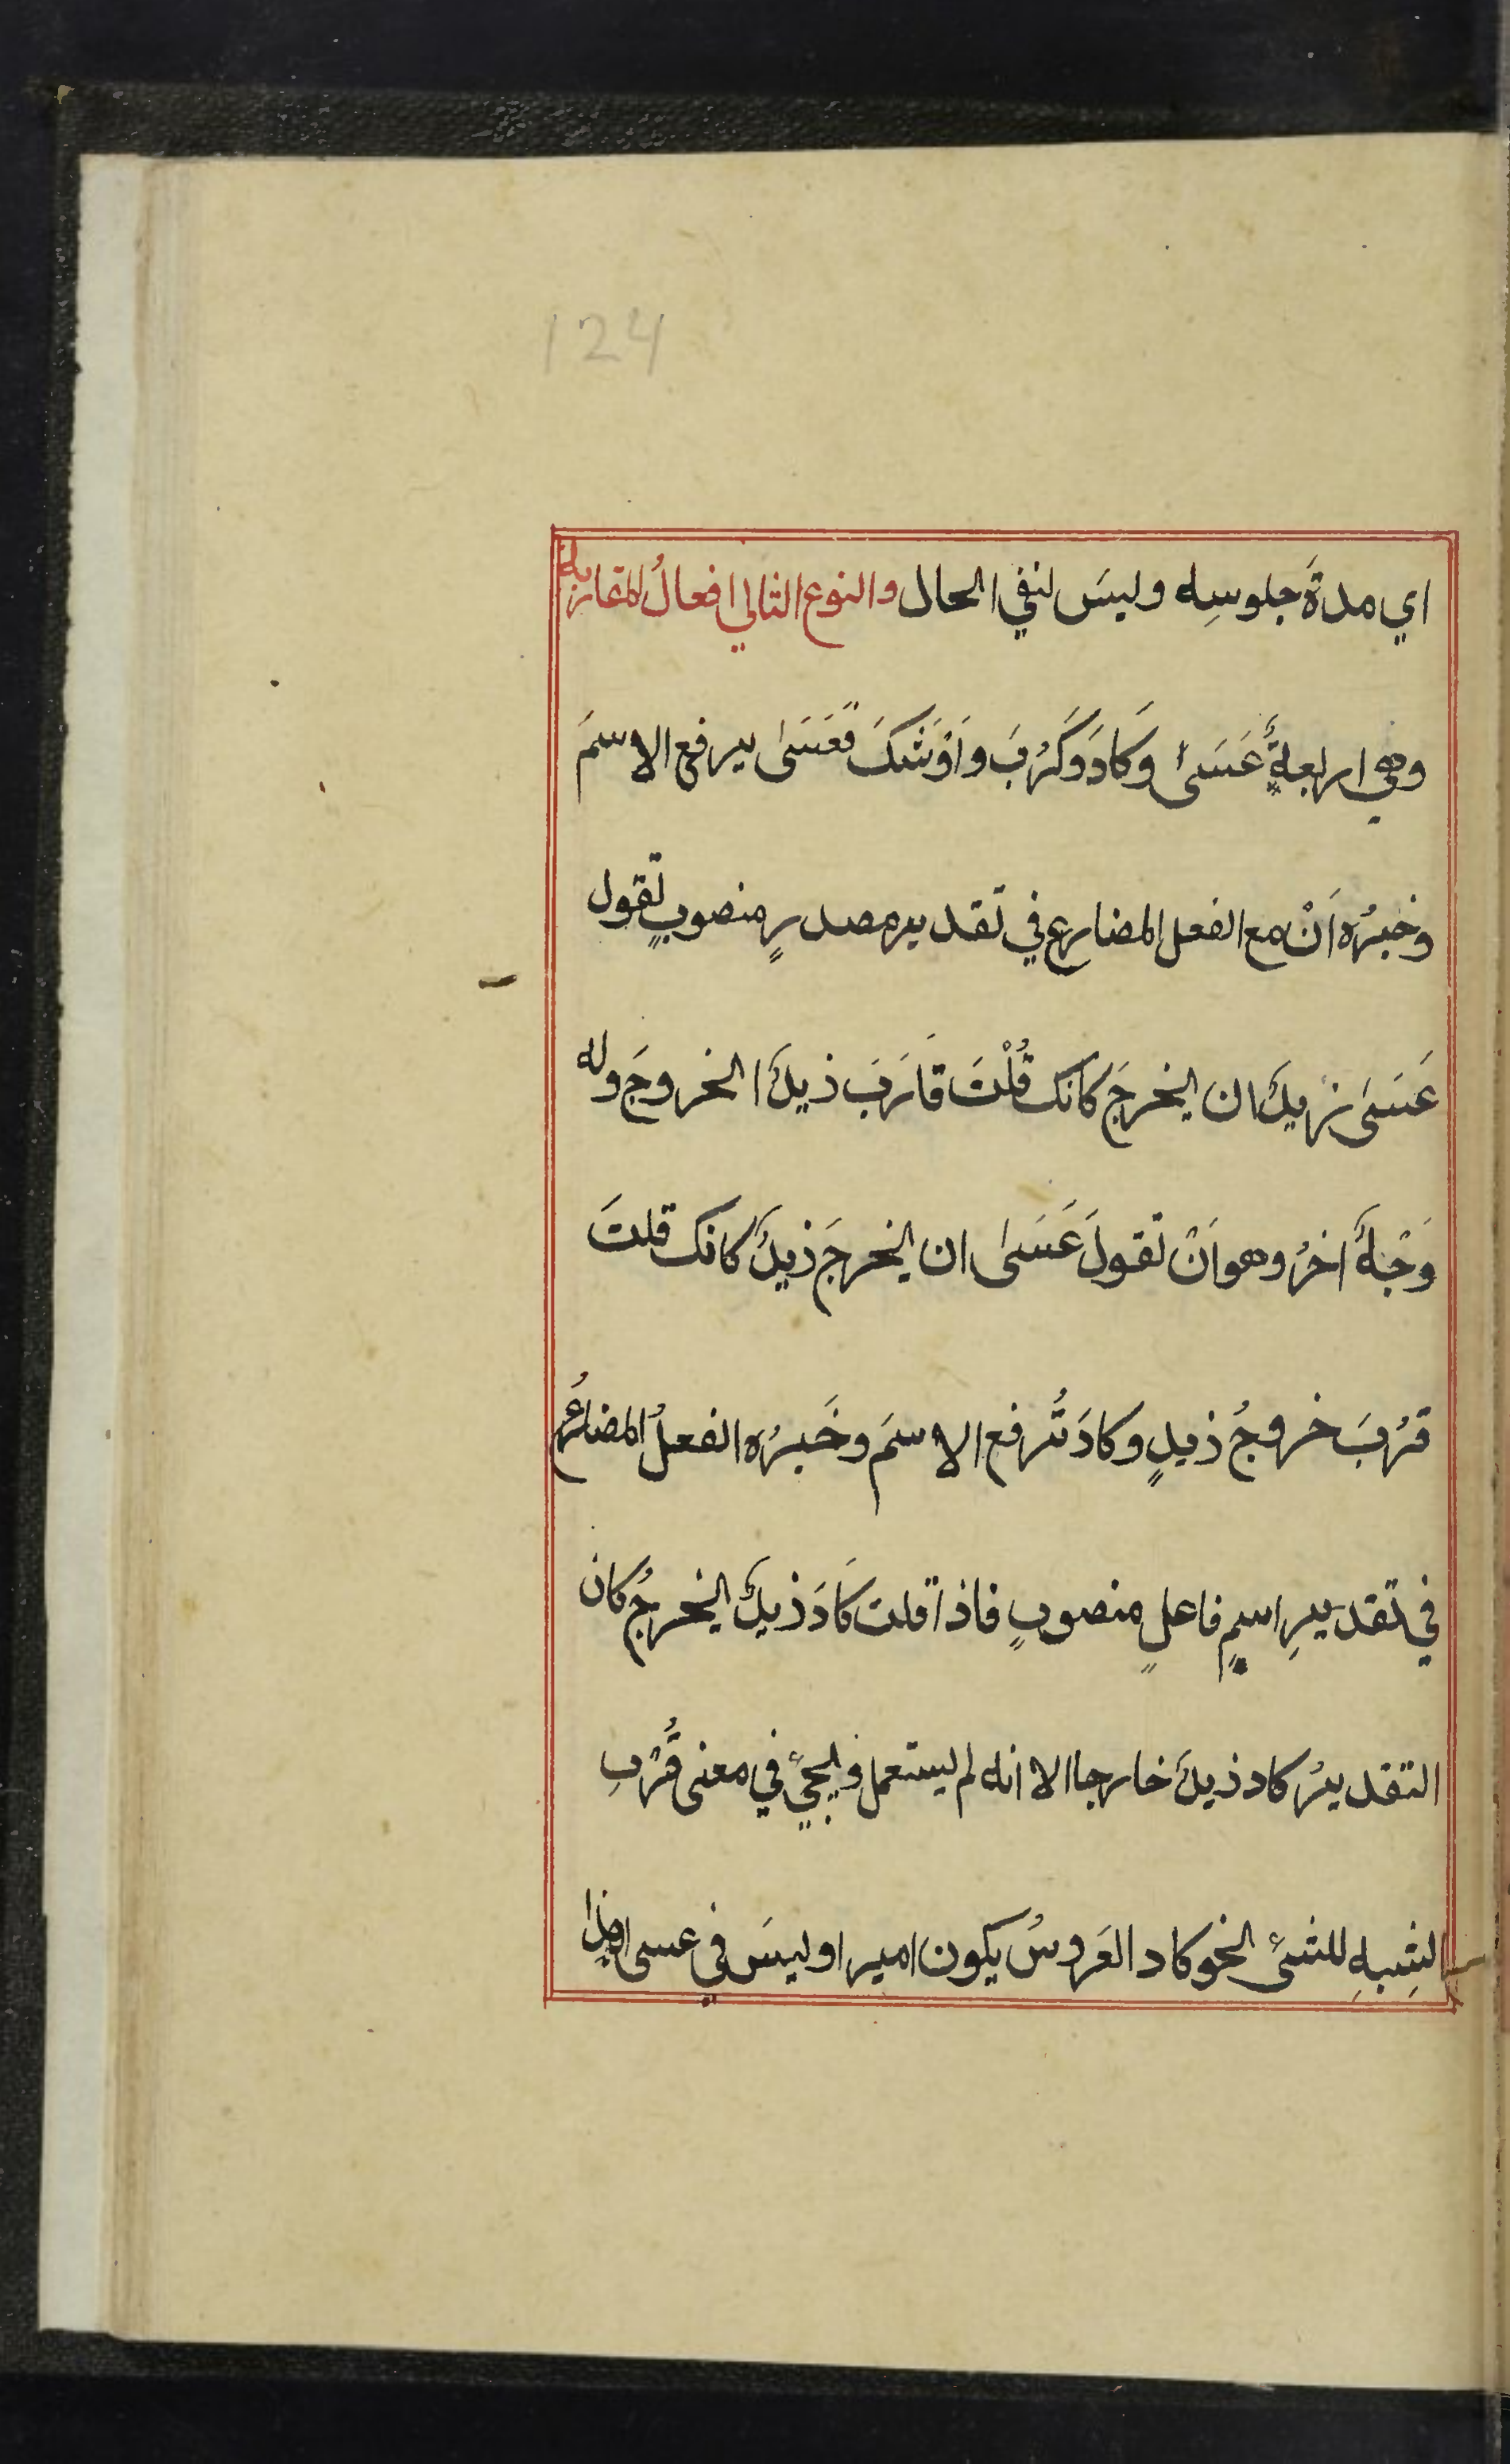 124
اي مدةَ جلوسِه وليسَ لنفي الحال والنوع الثاني افعالُ المقاربة
وهي اربعةٌ عَسَىٰ وَكَادَ وَكَرُبَ وَاَوْشَكَ فَعَسَىٰ يرفع الاسمَ
وخبرُه اَنْ مع الفعل المضارع في تقدير مصدرٍ منصوبٍ تقول
عَسَىٰ زيدٌ ان يخرجَ كانك قُلْتَ قَارَبَ زيدٌ الخروجَ وله
وَجْهٌ اخرُ وهو اَنْ تقولَ عَسَىٰ ان يخرجَ زيدٌ كانك قلتَ
قرُبَ خروجُ زيدٍ وكادَ تُرفع الاسمَ وخَبرُه الفعلُ المضارعُ
في تقديرِ اسمٍ فاعلٍ منصوبٍ فاذا قلت كَادَ زيدٌ يخرجُ كان
التقديرُ كاد زيدٌ خارجا الا انه لم يستعمل ويجيُ في معنى قُرْبِ
الشِبهِ للشئ نحو كاد العَروسُ يكون اميرا وليسَ في عسى هذا